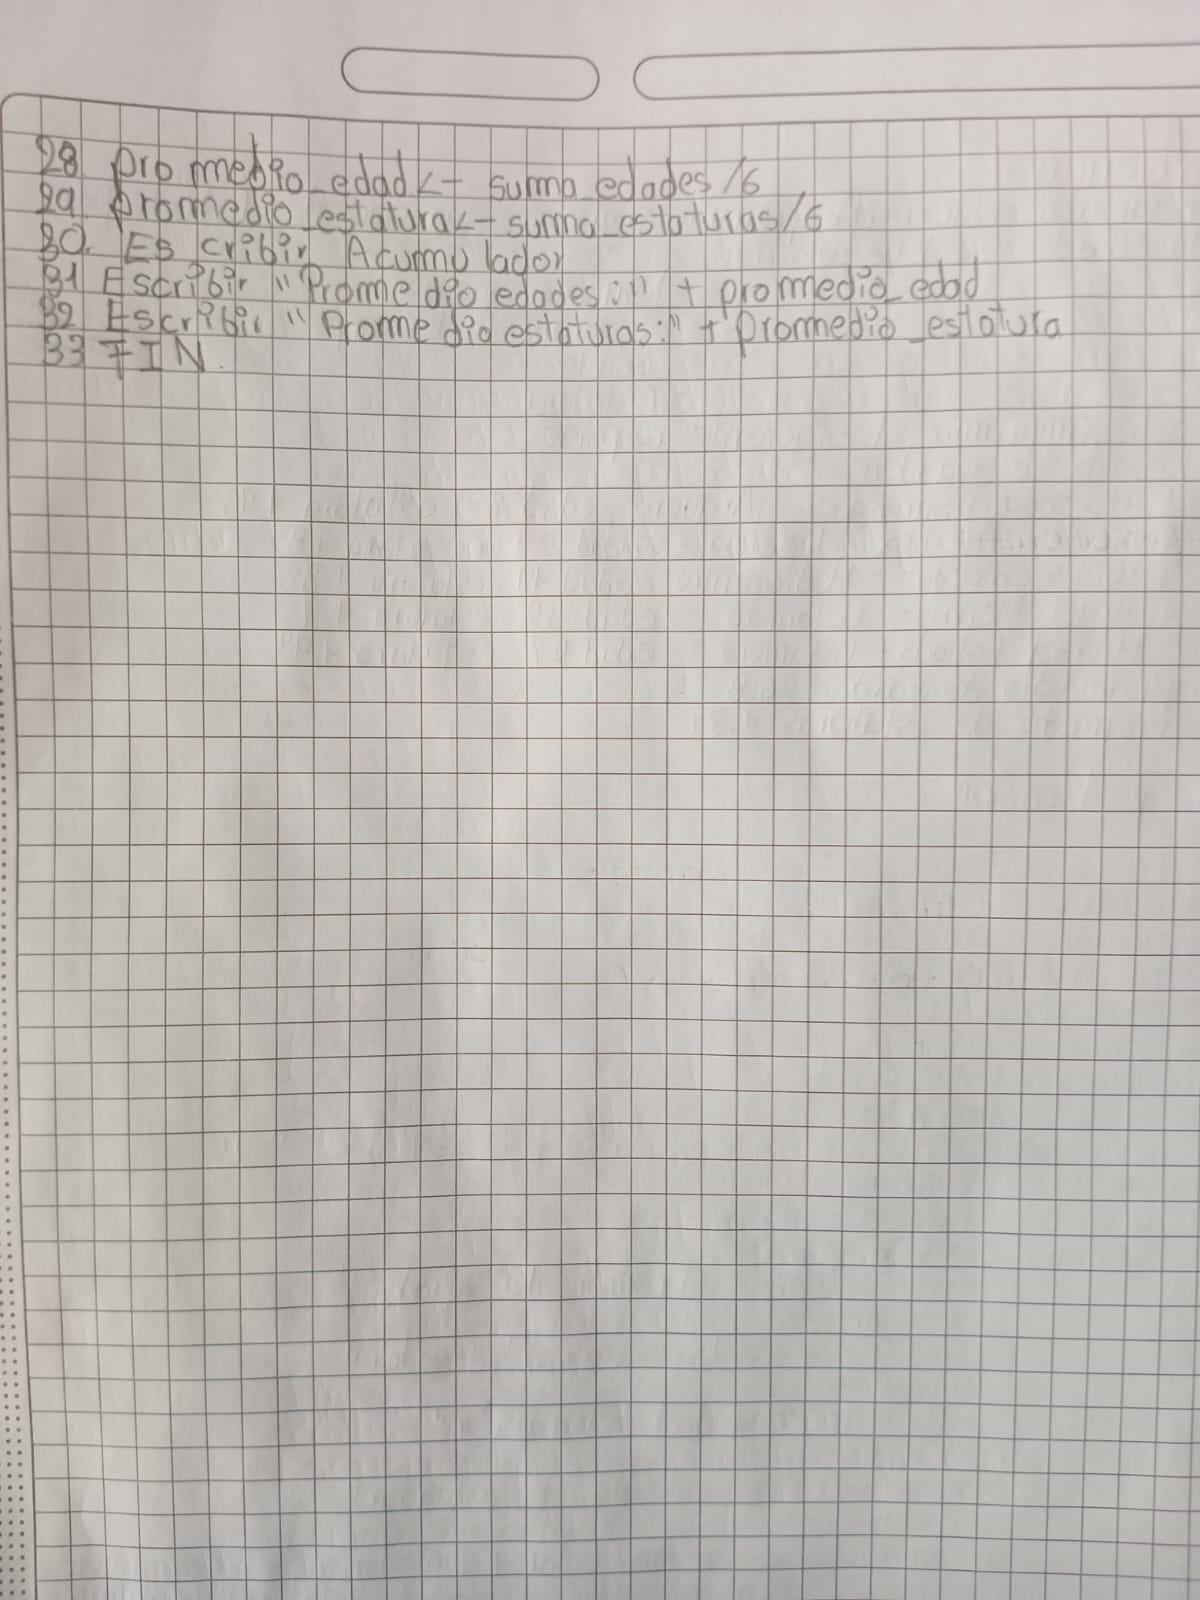 28 promedio_edad <- suma_edades/6
29 promedio_estatura <- suma_estaturas/6
30. Escribir Acumulador
31 Escribir "Promedio edades:" + promedio_edad
32 Escribir "Promedio estaturas:" + promedio_estatura
33 FIN.